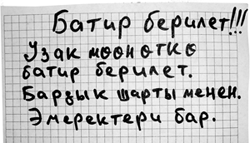 Батир берилет!!!
Узак мөөнөткө
батир берилет.
Бардык шарты менен.
Эмеректери бар.